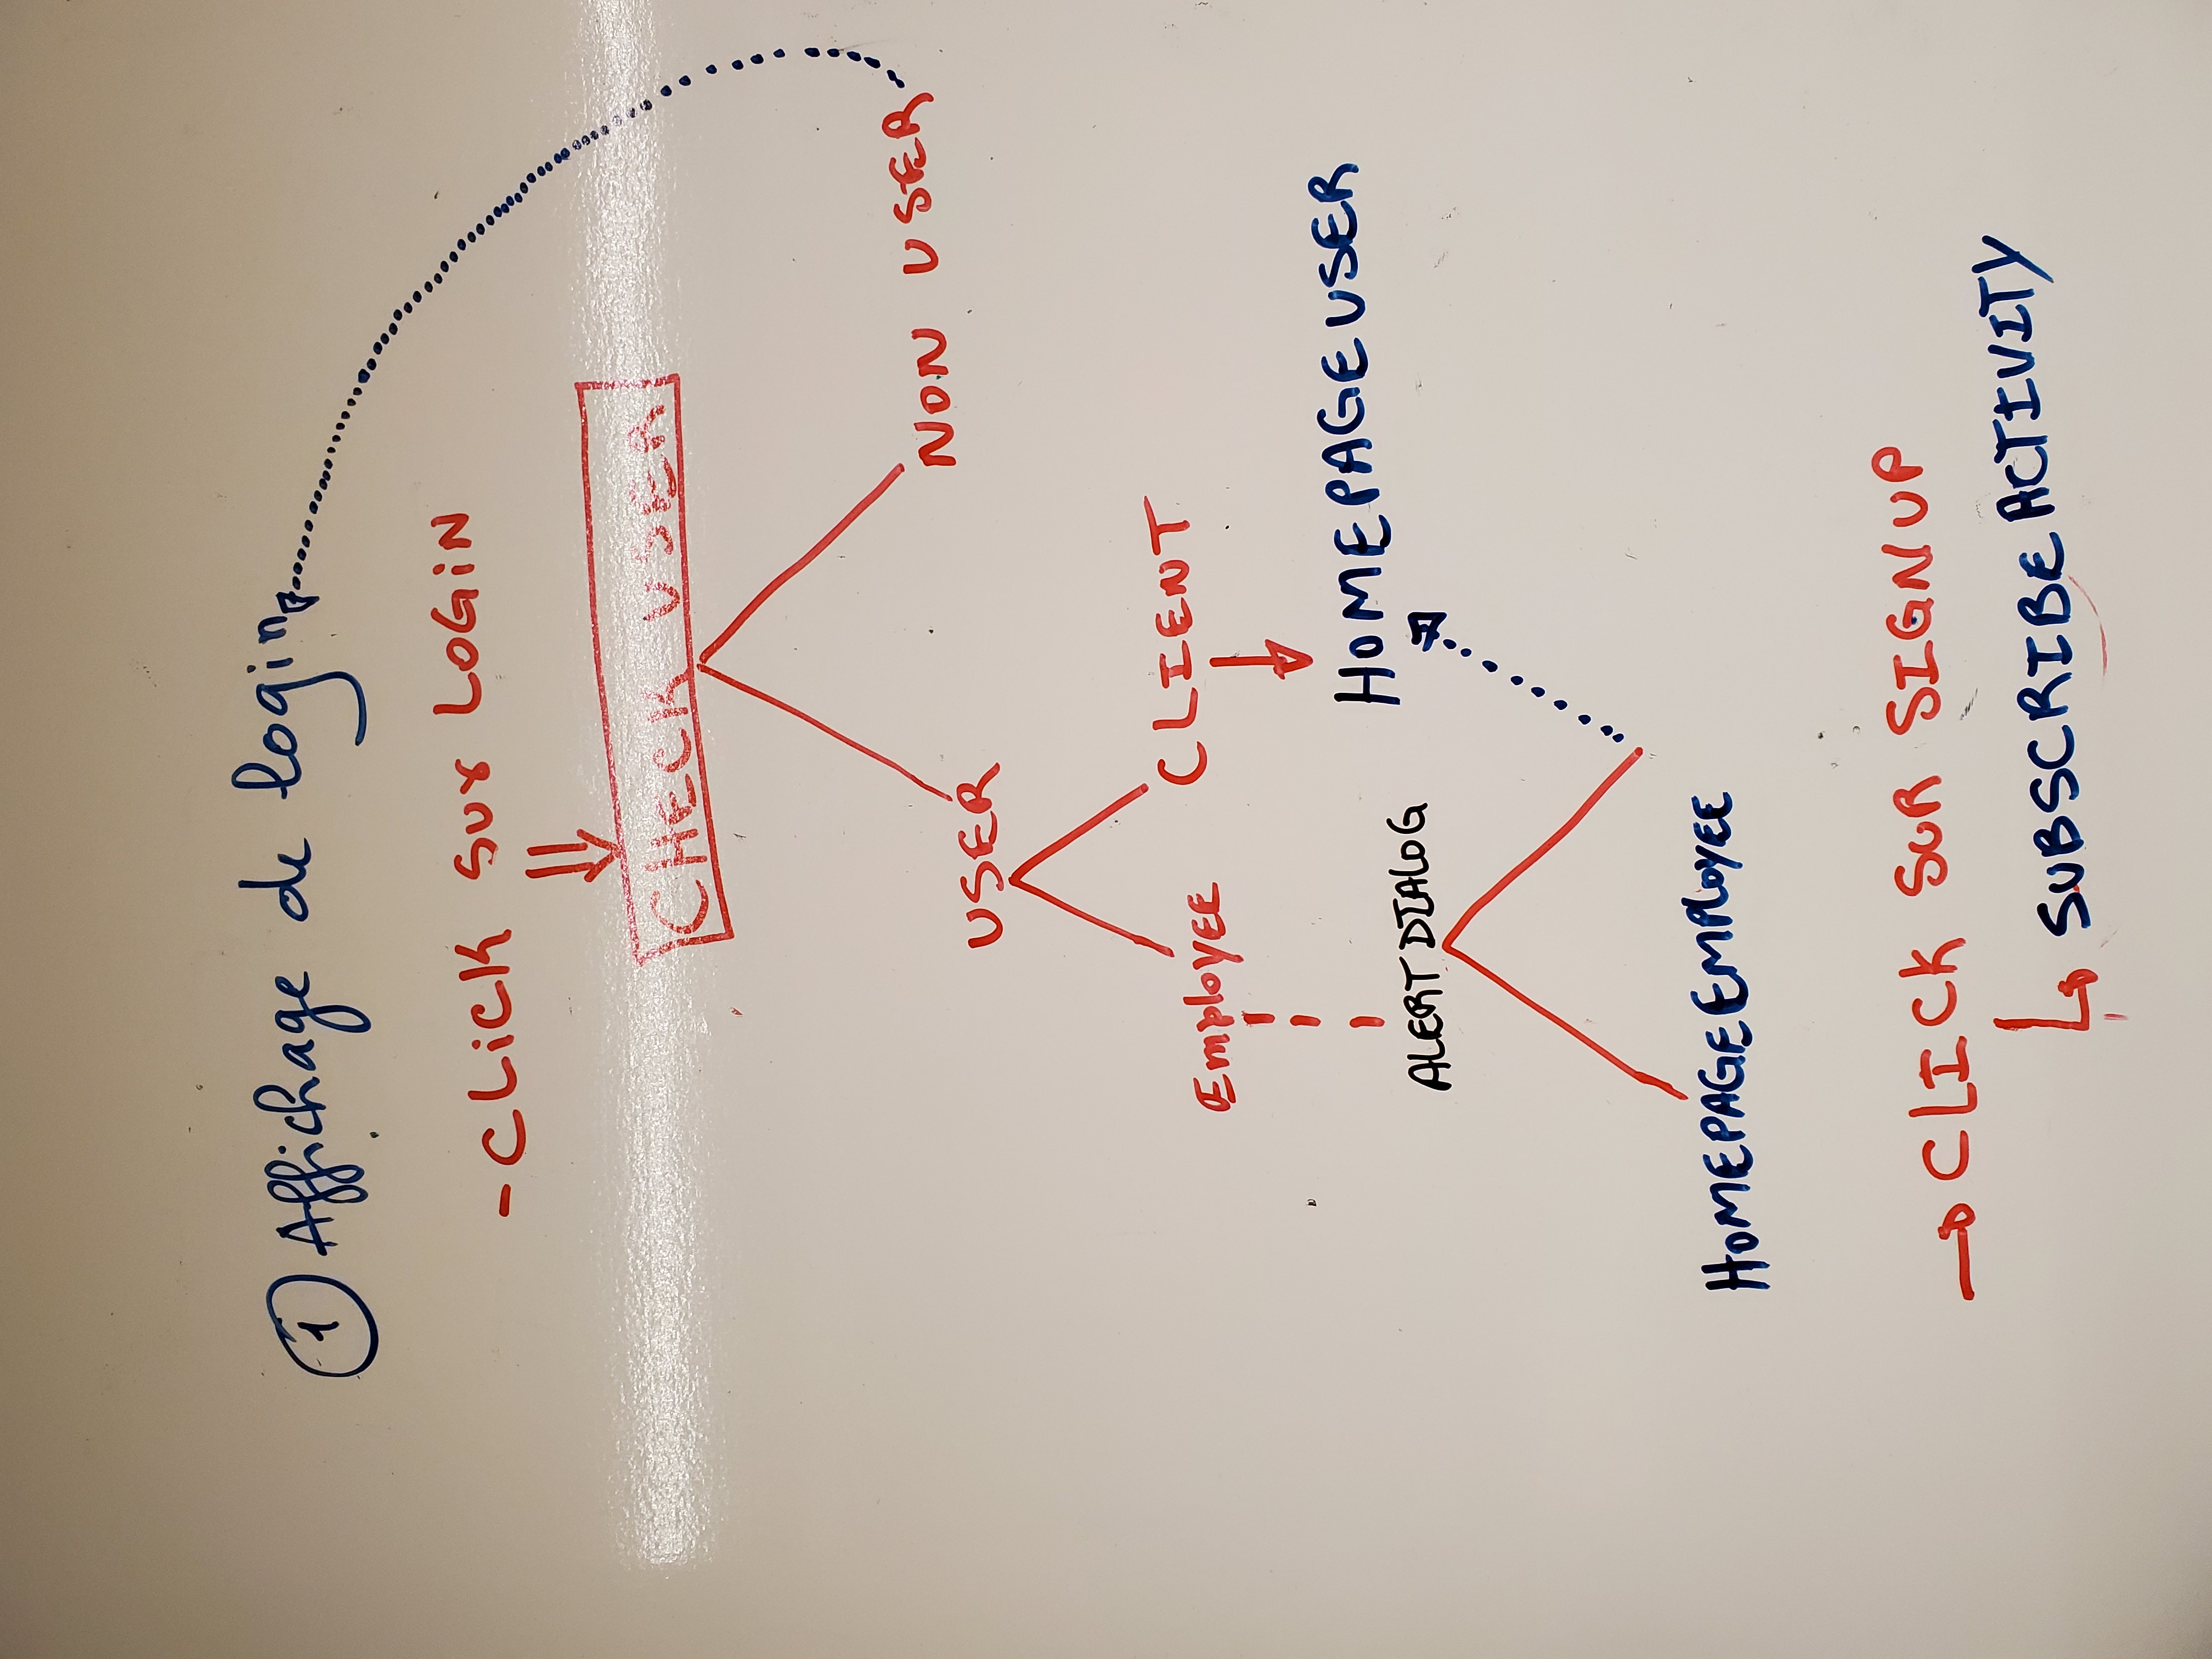 1 Affichage de login
- CLiCK Sur LOGiN
CHECK USER
NON USER
USER
EmployEE CLIENT
HOMEPAGEUSER
ALERT DIALOG
HOMEPAGEEMPLOYEE
CLICK SUR SIGNUP
SUBSCRIBE ACTIVITY